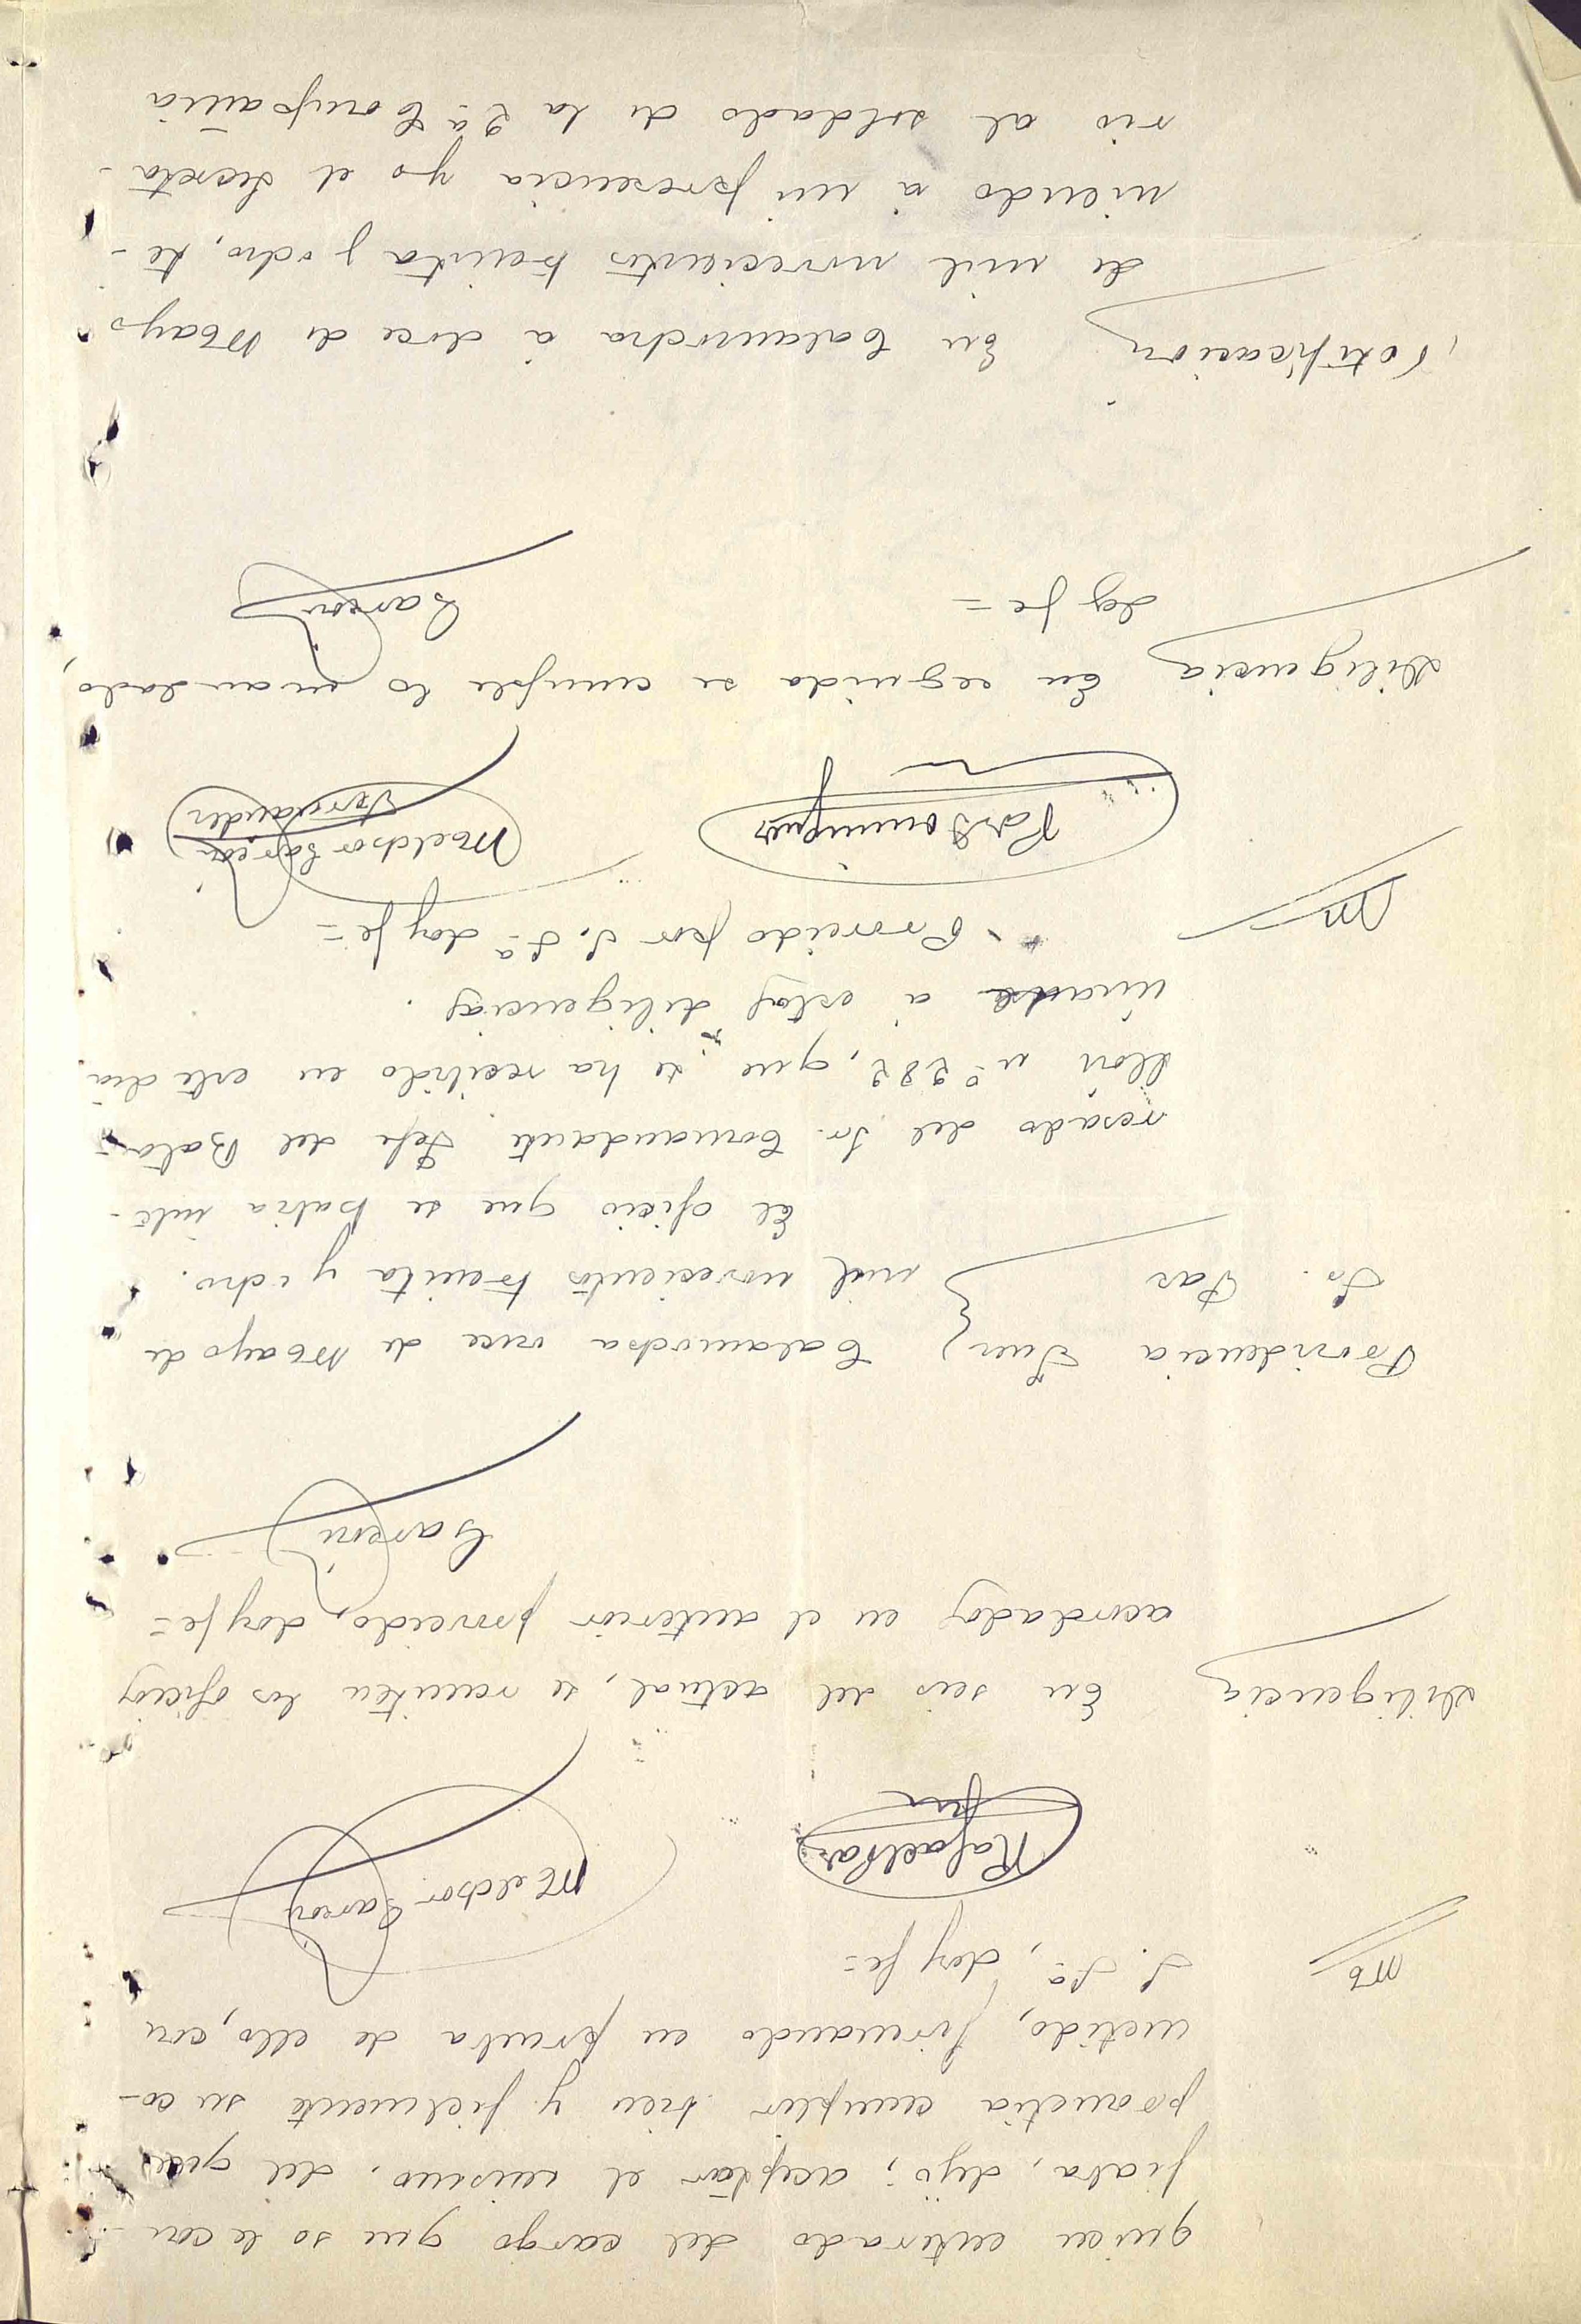 quien enterado del cargo que se le con-
fiaba, dijo; aceptar el mismo, del que
prometia cumplir bien y fielmente su co-
metido, firmando en prueba de ello, con
S. Sª, doy fe=
Rafael Par
Melchor Garcia
Diligencia En seis del actual, se remiten los oficios
acordados en el anterior proveido, doy fe=
Garcia
Providencia Juez Calamocha once de Mayo de
Sr. Par mil novecientos treinta y ocho.
El oficio que se habia inte-
resado del Sr. Comandante Jefe del Bata-
llon nº 282, que se ha recibido en este dia
únase á estas diligencias.
Proveido por S. Sª doy fe=
Melchor Garcia
Fernandez
Diligencia En seguida se cumple lo mandado,
doy fe=
Garcia
Notificacion En Calamocha á doce de Mayo
de mil novecientos treinta y ocho, te-
niendo á mi presencia yo el Secreta-
rio al soldado de la 2ª Compañia